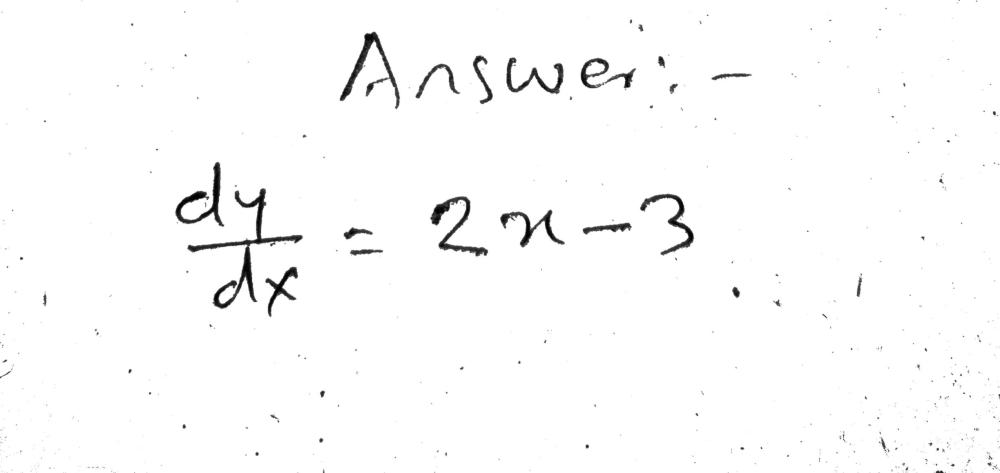 Answer:-
dy/dx = 2x-3